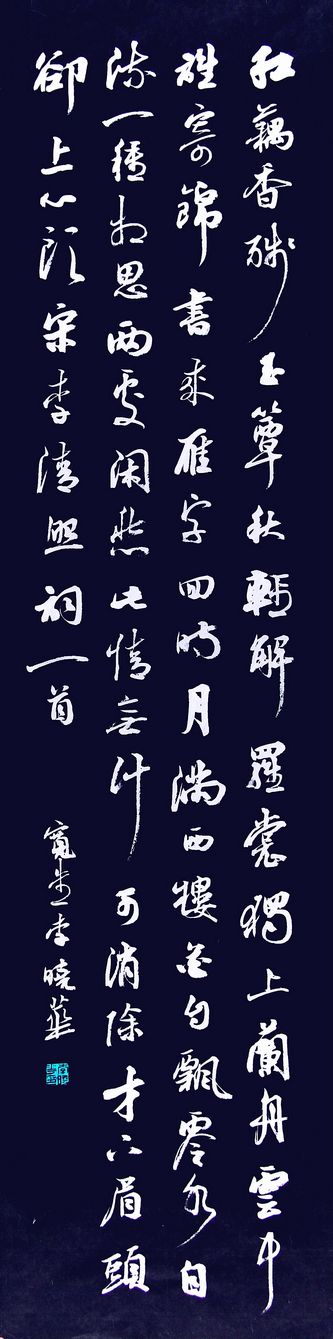 紅藕香殘玉簟秋輕解羅裳獨上蘭舟雲中
誰寄錦書來雁字回時月滿西樓花自飄零水自
流一種相思兩處閑愁此情無計可消除才下眉頭
卻上心頭宋李清照詞一首
李曉